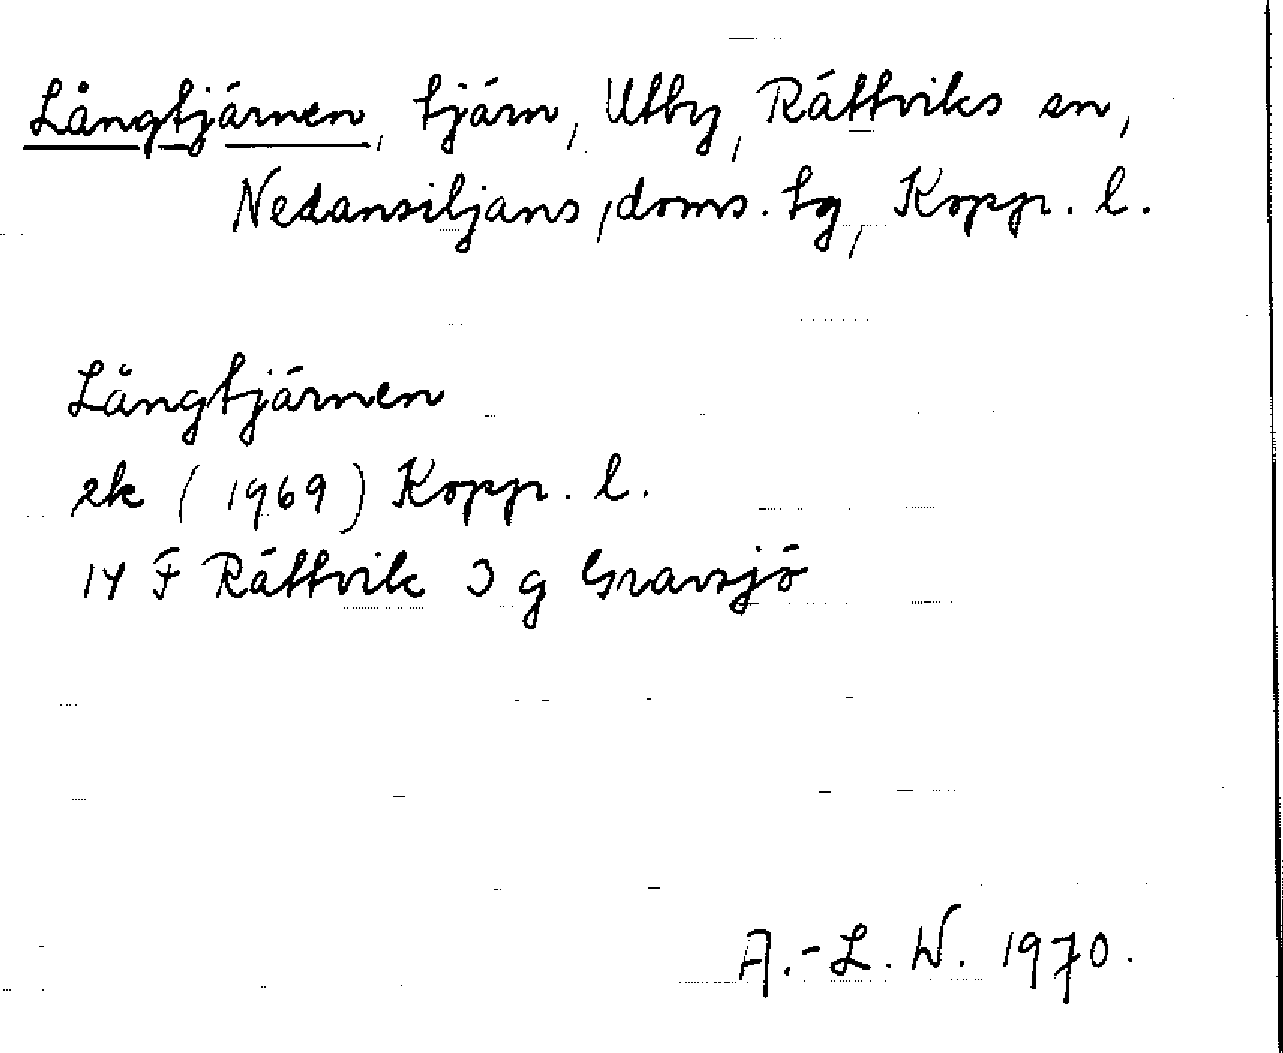 Långtjärnen, tjärn, Utby, Rättviks sn,
Nedansiljans, doms. tg, Kopp. l.
Långtjärnen
ek (1969) Kopp. l.
14 F Rättvik 3 g Gravsjö
A.-L. W. 1970.